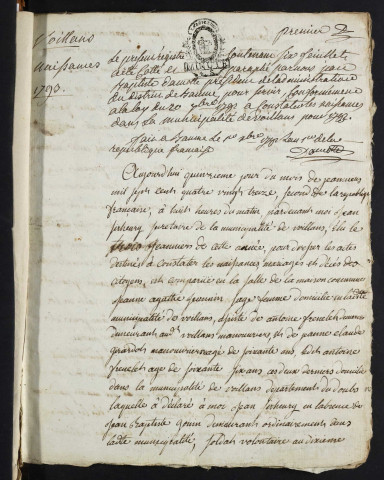 Voillans
naissances
1793.
premier
le present registre contenant six feuillets
a été cotté et paraphé par nous
Baptiste president de l'administration
du district de Baume, pour servir conformement
a la loy du 20 7bre 1792 a constater les naissances
dans la municipalité de voillans pour 1793.
fait a Baume le 1er xbre 1792 l'an 1er de la
republique française
Aujourd'huy quatrieme jour du mois de janvier
mil sept cent quatre vingt treize, second de la republique
française, à huit heures du matin, pardevant moi jean
secretaire de la municipalité de voillans, élu le
janvier de cette année, pour dresser les actes
destinés à constater les naissances mariages et décès des
citoyens, est comparue en la salle de la maison commune
jeanne agathe sage femme domiciliée en laditte
municipalité de voillans, assistée de antoine
demeurant aud. voillans manouvrier, et de jeanne claude
girardot manouvriere agée de soixante ans ledit antoine
agé de soixante six ans ces deux derniers domiciliés
dans la municipalité de voillans departement du doubs
laquelle a déclaré à moi jean qu'en l'absence de
jean Baptiste demeurant ordinairement dans
laditte municipalité, soldat volontaire au dixieme